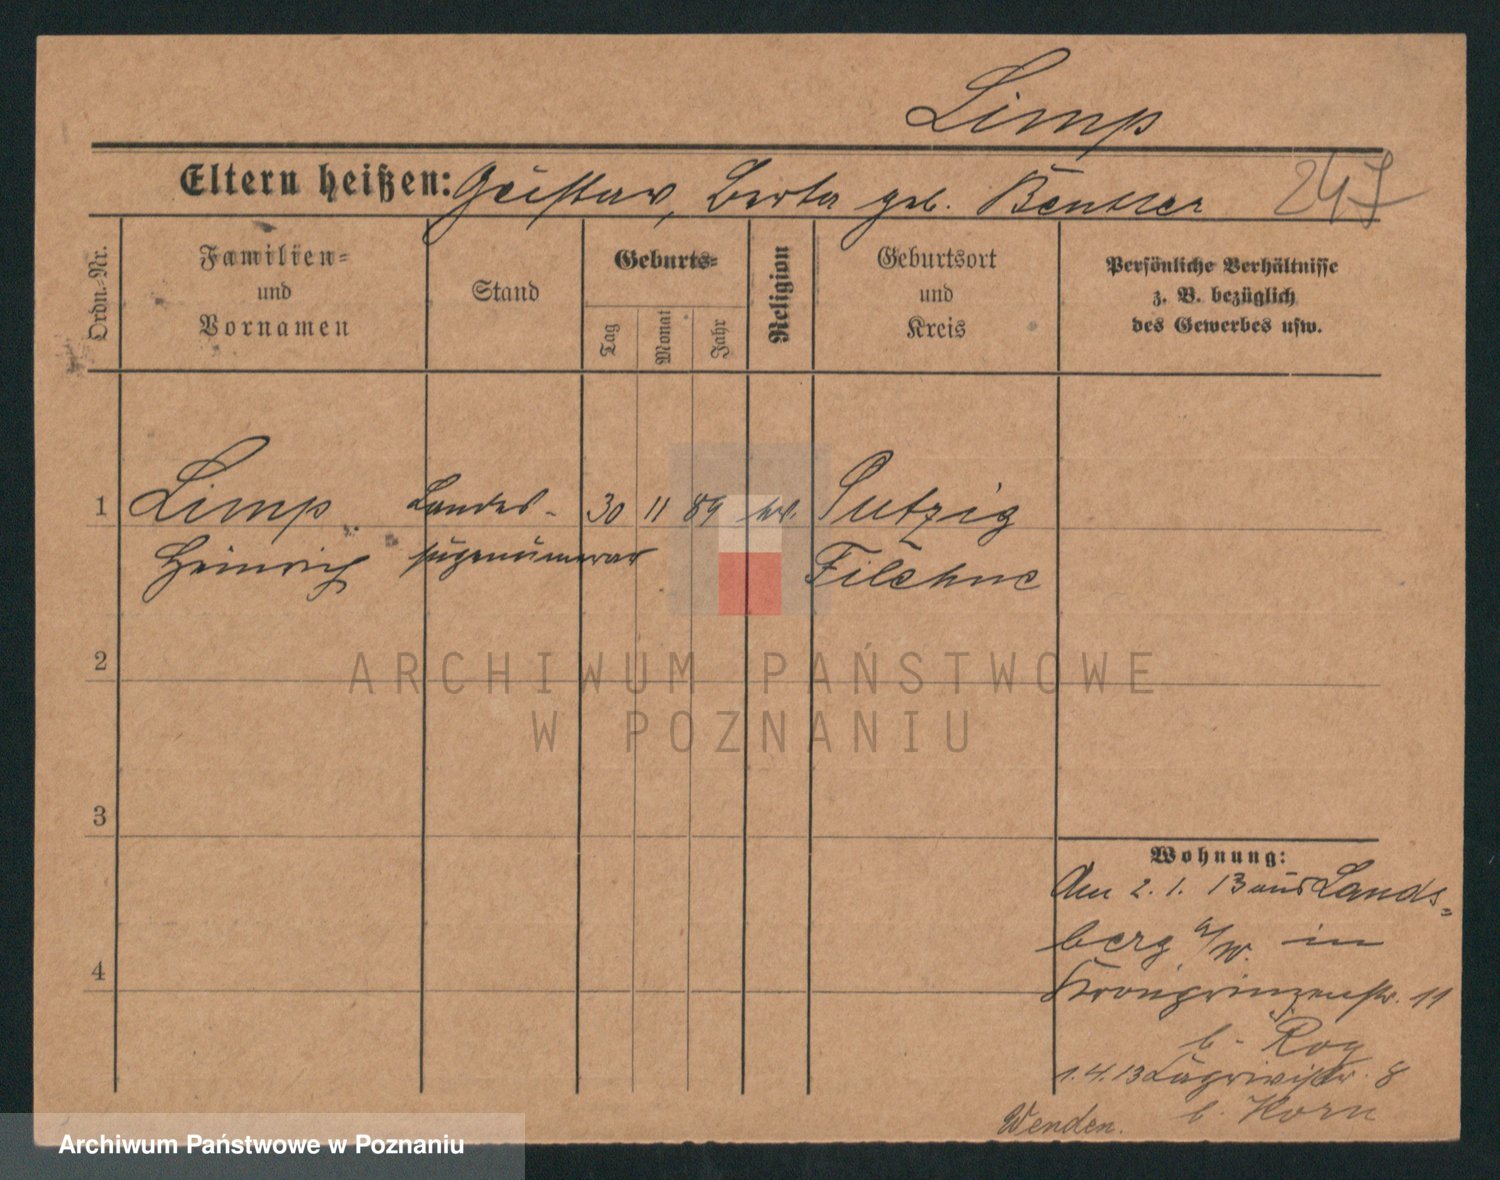 Limp
Eltern heißen: Gustav, Berta geb. Bentzer 247
Ordn.-Nr.
Familien-
und
Vornamen
Stand
Geburts-
Tag
Monat
Jahr
Religion
Geburtsort
und
Kreis
Persönliche Verhältnisse
z. B. bezüglich
des Gewerbes usw.
1 Limp Landes- 30 11 89 ev. Putzig
Heinrich Filehne
2
ARCHIWUM PAŃSTWOWE
W POZNANIU
3
Wohnung:
Am 2. 1. 13 aus Lands-
berg a/W. in
4
Kronprinzenstr. 11
b. Roy
1.4.13 8
Wenden. b. Korn
Archiwum Państwowe w Poznaniu